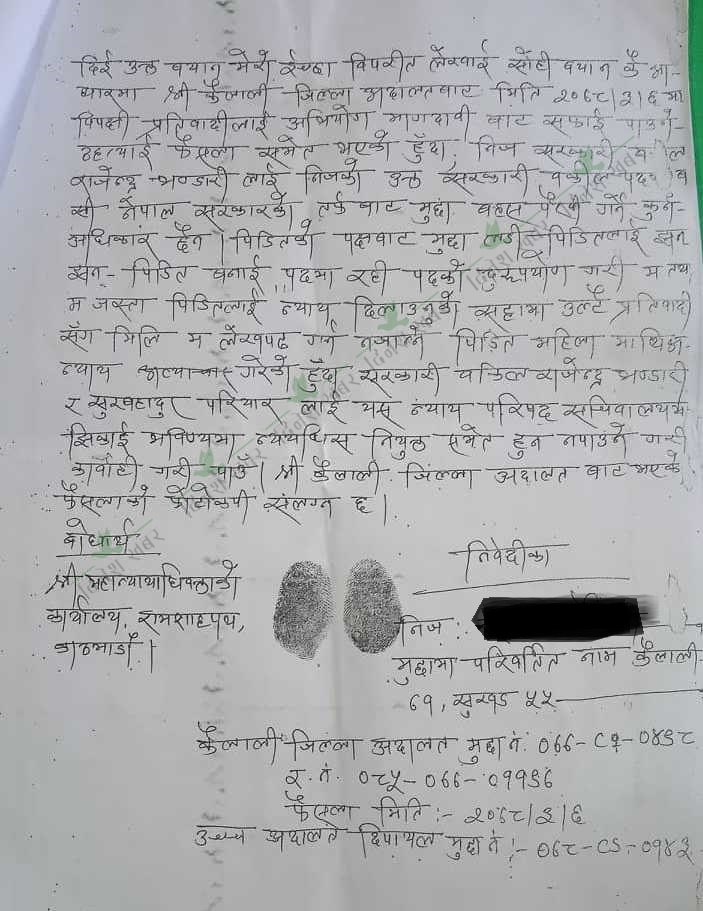 दिई उक्त बयान मेरो ईच्छा विपरीत लेखाई सोही बयान कै आ-
धारमा श्री कैलाली जिल्ला अदालतबाट मिति २०६८/३/६ मा
विपक्षी प्रतिवादीलाई अभियोग मागदावी बाट सफाई पाउने
ठहर्‍याई फैसला समेत भएको हुँदा निज सरकारी वकिल
राजेन्द्र भण्डारी लाई निजको उक्त सरकारी वकील पद
सो नेपाल सरकारको तर्फ बाट मुद्दा बहस पैरवी गर्ने कुनै
अधिकार छैन । पिडितको पक्षबाट मुद्दा लडी पिडितलाई झन
झन- पिडित बनाई पदमा रही पदको दुरूपयोग गरी म तथा
म जस्ता पिडितलाई न्याय दिलाउनुको सट्टामा उल्टै प्रतिवादी
सँग मिलि म लेखपढ गर्न नजान्ने पिडित महिला माथि अ-
न्याय अत्याचार गरेको हुँदा सरकारी वकिल राजेन्द्र भण्डारी
र सुरबहादुर परियार लाई यस न्याय परिषद सचिवालयमा
झिकाई भविष्यमा न्यायधिस नियुक्त समेत हुन नपाउने गरी
कार्वाही गरी पाउँ । श्री कैलाली जिल्ला अदालत बाट भएको
फैसलाको फोटोकपी संलग्न छ ।
बोधार्थ
श्री महान्यायाधिवक्ताको
कार्यालय, रामशाहपथ,
काठमाडौं ।
निवेदीका
निज :
मुद्दामा परिवर्तित नाम कैलाली
६१, सुखड ५५
कैलाली जिल्ला अदालत मुद्दा नं. ०६६-C१-०४३८
र. नं. ०८५-०६६-०११३६
फैसला मिति :- २०६८/३/६
उच्च अदालत दिपायल मुद्दा नं :- ०६८-CS-०१४३
दिनेश खबर